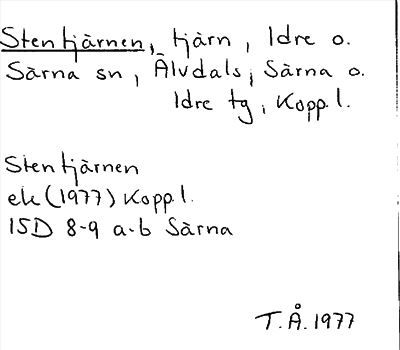 Stentjärnen, tjärn, Idre o.
Särna sn, Älvdals, Särna o.
Idre tg, Kopp.l.
Stentjärnen
ek (1977) Kopp.l.
15D 8-9 a-b Särna
T.Å. 1977